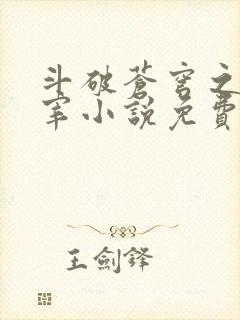 斗破蒼穹之
宰小說免費
王劍鋒